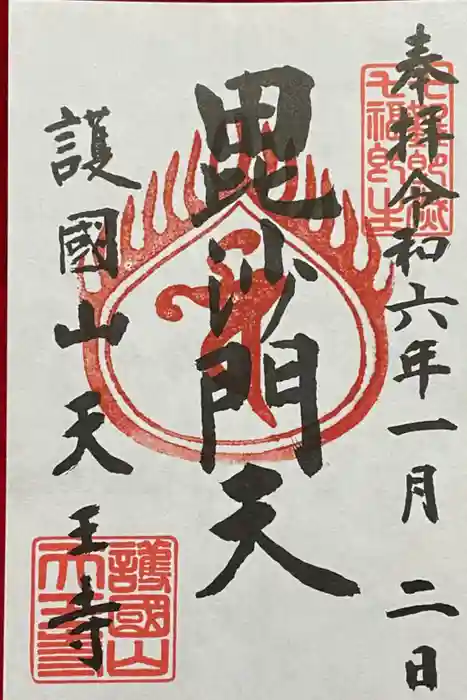 奉拝令和六年一月二日
七難即滅
七福即生
毘沙門天
護國山天王寺
護國山
天王寺